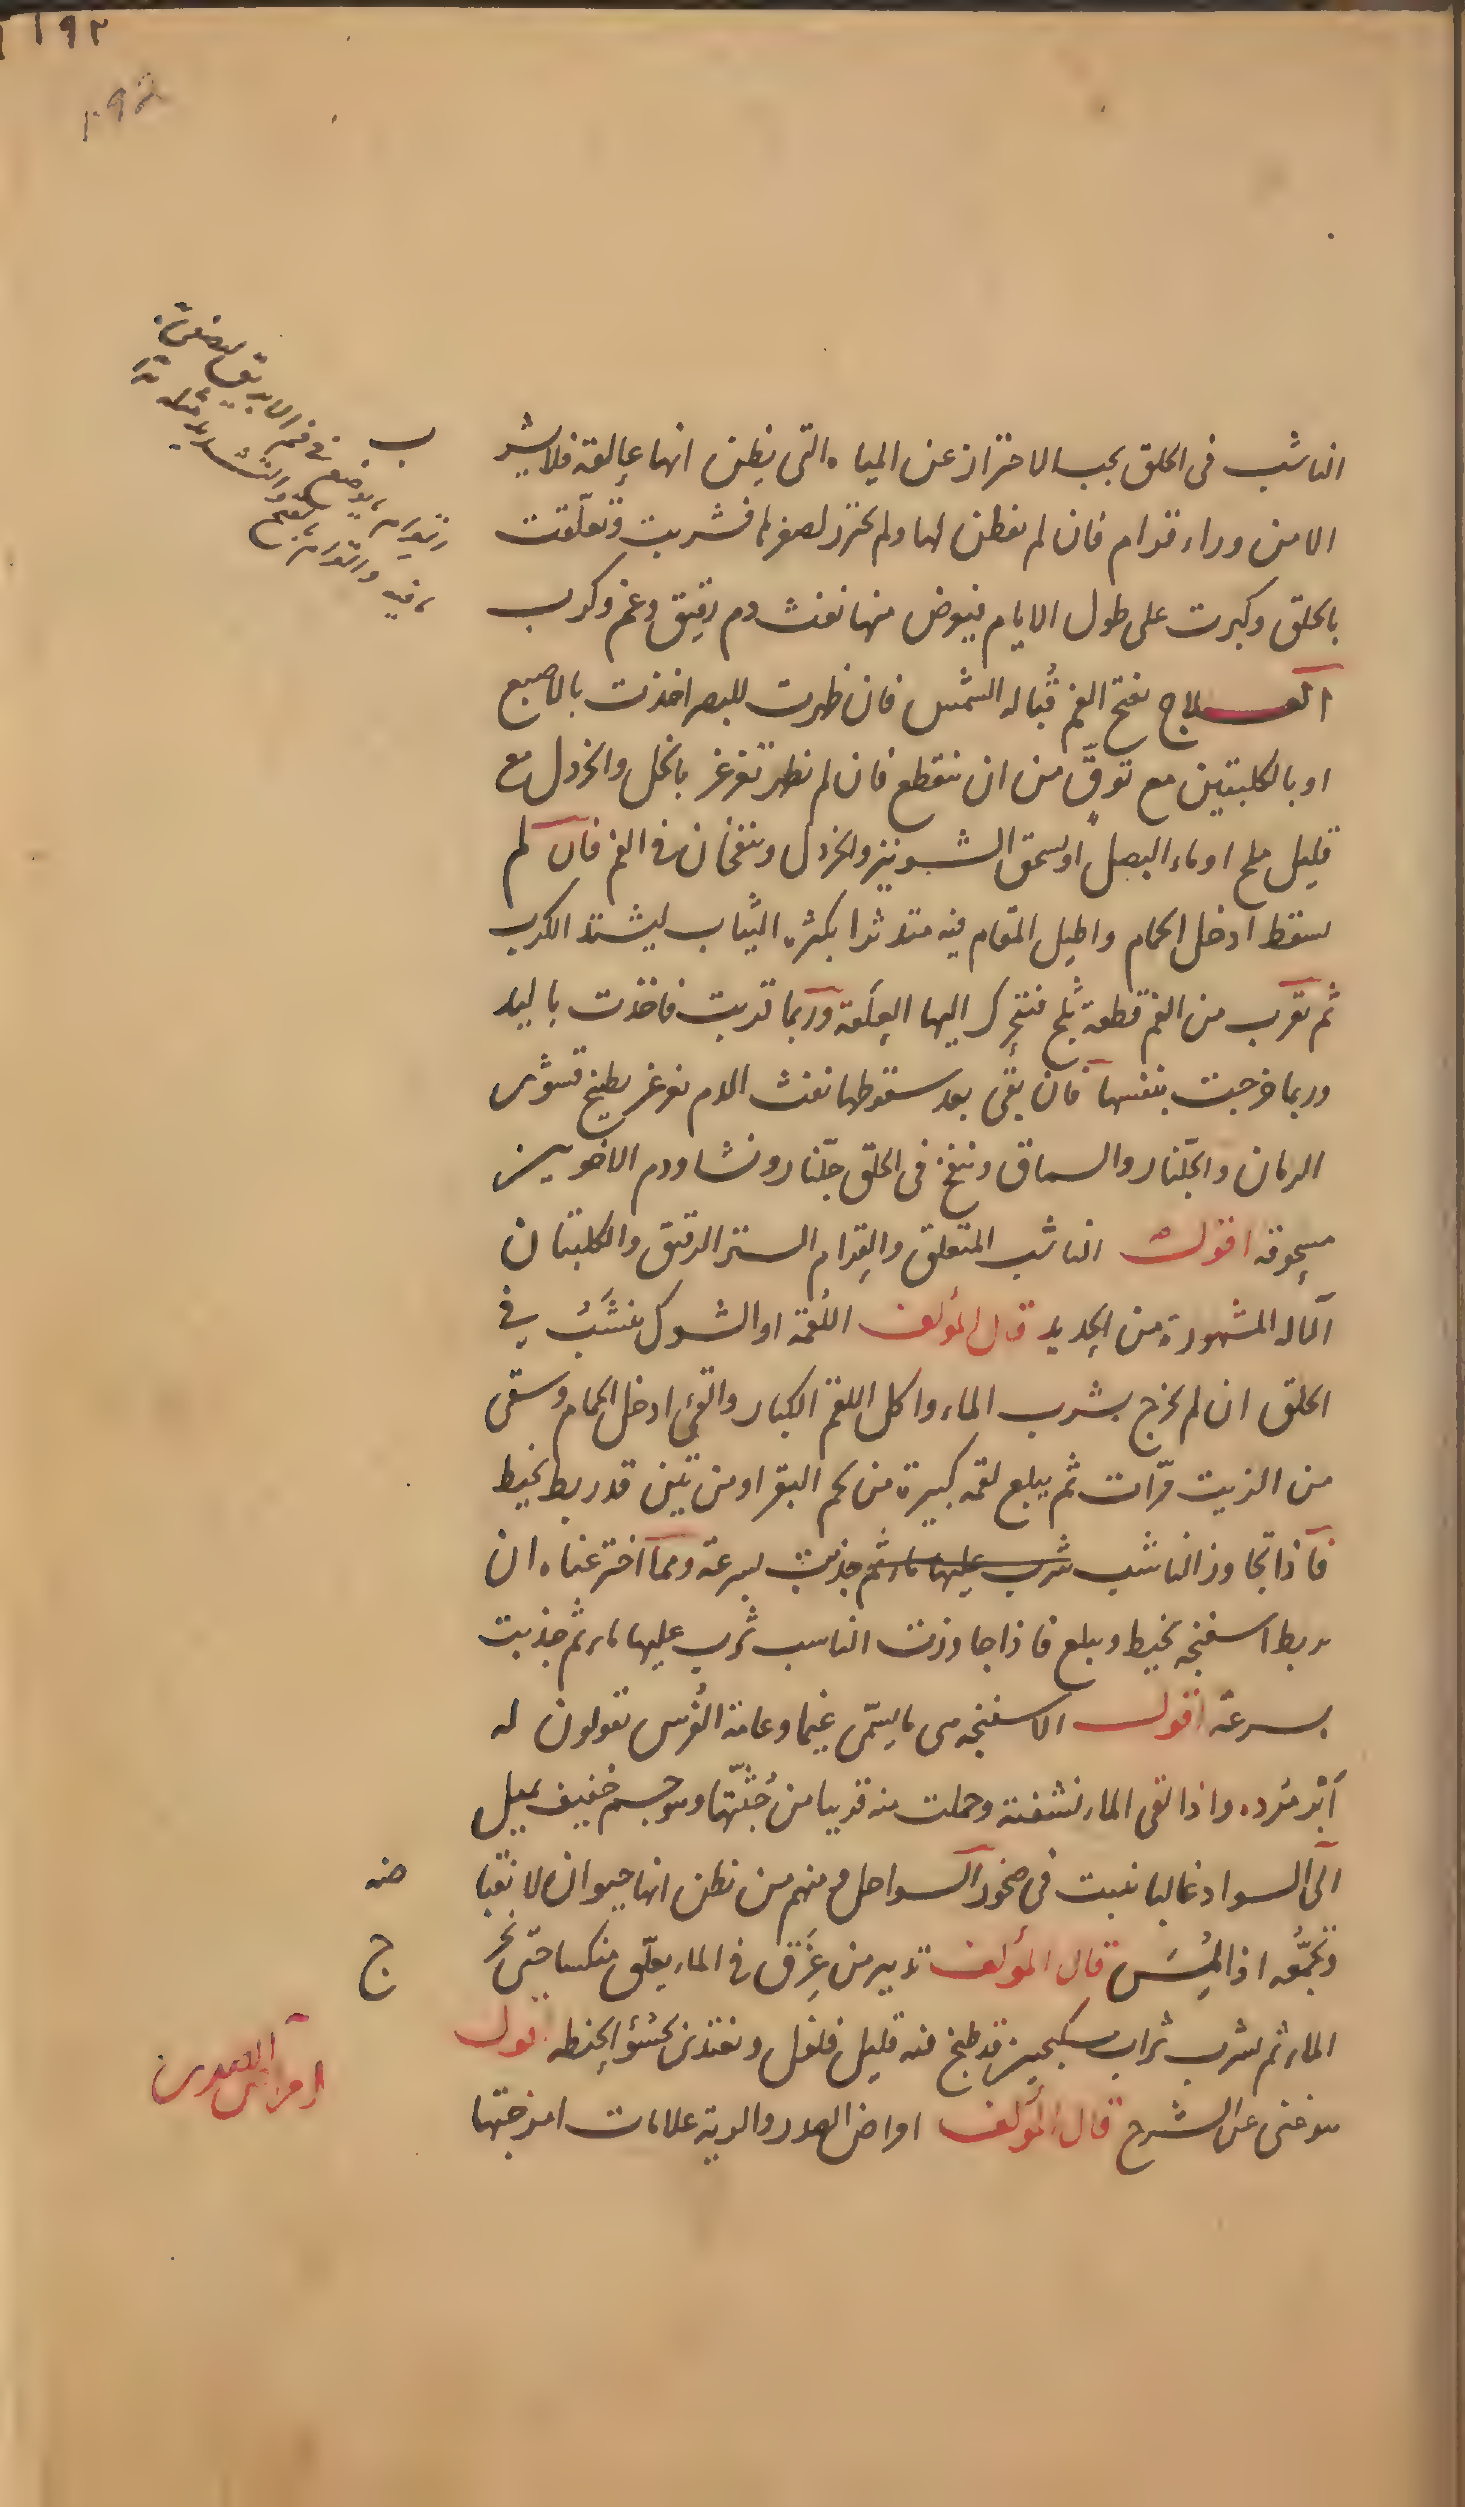 ١٩٢
١٩٢
الناشب فى الحلق يجب الاحتراز عن المياه التى يظن انها عالقة فلا يشرب
الا من وراء قدام فان لم يفطن لها ولم يحترز لصغرها فشربت وتعلّقت
بالحلق وكبرت على طول الايام فيعرض منها نفث دم رقيق وغم وكرب
العلاج يفتح الفم قُبالة الشمس فان ظهرت للبصر اخذت بالاصبع
او بالكلبتين مع توقٍّ من ان ينقطع فان لم تظهر تغرغر بالخل والخردل مع
قليل ملح او ماء البصل او يسحق الشونيز والخردل وينفخان فى الفم فان لم
يسقط ادخل الحمام واطيل المقام فيه متدثرا بكثرة الثياب ليشتد الكرب
ثم تقرب من الفم قطعة ثلج فتتحرك اليها العلقة وربما قربت فاخذت باليد
وربما خرجت بنفسها فان بقى بعد سقوطها نفث الدم يغرغر بطبيخ قشور
الرمان والجلّنار والسماق وينفخ فى الحلق جلّنار ونشا ودم الاخوين
مسحوقة اقول الناشب المتعلق والقِدام الستر الرقيق والكلبتان
الآلة المشهورة من الحديد قال المؤلف اللُقمة او الشوك ينشَبُ فى
الحلق ان لم يخرج بشرب الماء واكل اللقم الكبار والقئ ادخل الحمام وسقى
من الزيت مرّات ثم يبلع لقمة كبيرة من لحم البقر او من تين قد ربط بخيط
فاذا تجاوز الناشب شرب عليها ماء ثم جذبت بسرعة ومما اخترعناه ان
يربط اسفنجة بخيط ويبلع فاذا جاوزت الناشب شرب عليها ماء ثم جذبت
بسرعة اقول الاسفنجة هى ما يسمّى غيما وعامة الفُرس يقولون له
اَبْر مُرده واذا لقى الماء نشفته وحملت منه قريبا من جُثّتها وهو جسم خفيف يميل
الى السواد غالبا ينبت فى صخور السواحل ومنهم من يظن انها حيوان لا نقبا
وتجمُّعه اذا لُمِسَ قال المؤلف تدبير من غَرَق فى الماء يعلّق منكسا حتى يخرج
الماء ثم يشرب شراب سكنجبين قد طبخ فيه قليل فلفل ويغتذى بحسو الحنطة اقول
هو غنى عن الشرح قال المؤلف امراض الصدر والرية علامات امزجتها
ب
منه
ج
امراض الصدر